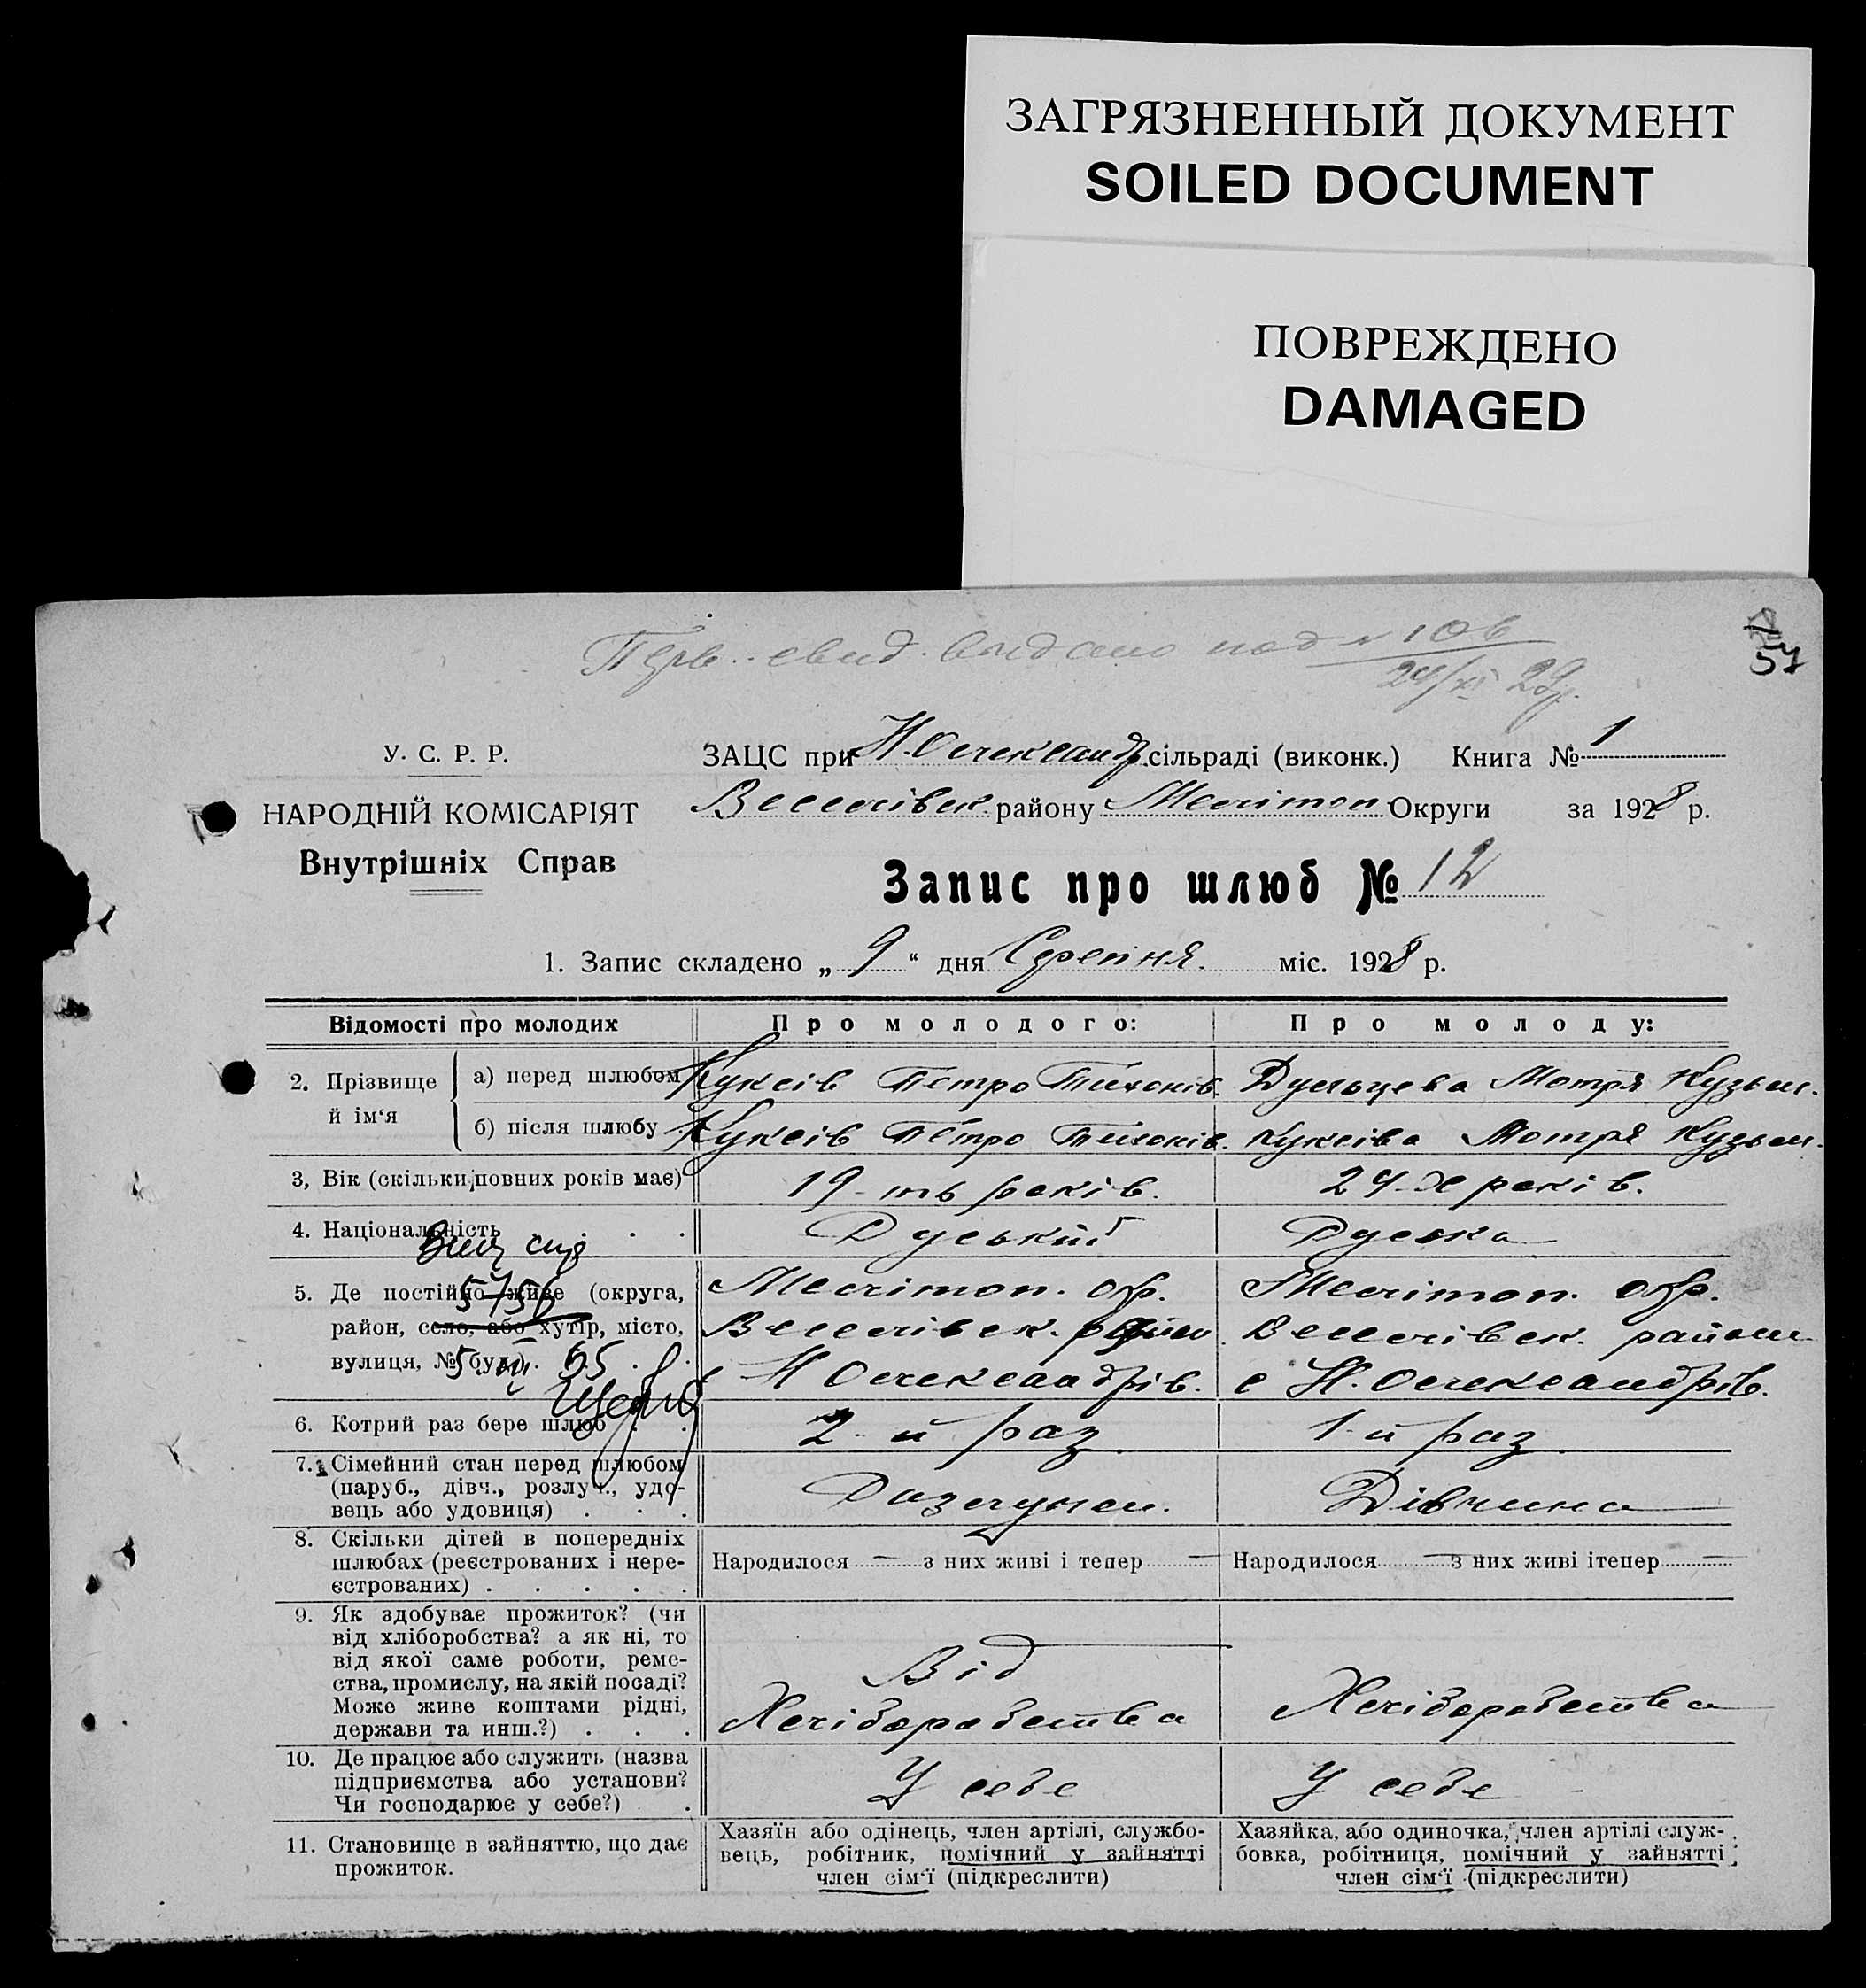 ЗАГРЯЗНЕННЫЙ ДОКУМЕНТ
SOILED DOCUMENT
ПОВРЕЖДЕНО
DAMAGED
свид. выдано под № 106
24/XI 29 г.
57
У. С. Р. Р.
НАРОДНІЙ КОМІСАРІЯТ
Внутрішніх Справ
ЗАЦС при Н. Олександр. сільраді (виконк.) Книга № 1
Веселівськ. району Мелітоп. Округи за 1928 р.
Запис про шлюб № 12
1. Запис складено „ 9 “ дня Серпня міс. 1928 р.
Відомості про молодих Про молодого: Про молоду:
2. Прізвище й ім‘я
а) перед шлюбом Куксів Петро Тихонів. Мотря Кузьм.
б) після шлюбу Куксів Петро Тихонів. Куксіва Мотря Кузьм.
3, Вік (скільки повних років має) 19-ть років. 24-х років.
4. Національність . . . Руський Руська
5756
5. Де постійно живе (округа, район, село, або хутір, місто, вулиця, № буд.) . . .
Мелітоп. окр.
Веселівськ. район
с Н Олександрів.
Мелітоп. окр.
Веселівськ. район
с Н. Олександрів.
6. Котрий раз бере шлюб . . 2-й раз. 1-й раз.
7. Сімейний стан перед шлюбом
(паруб., дівч., розлуч., удо-
вець або удовиця) . . . Разлучен. Дівчина
8. Скільки дітей в попередніх
шлюбах (реєстрованих і нере-
єстрованих) . . . . .
Народилося — з них живі і тепер — Народилося — з них живі ітепер —
9. Як здобуває прожиток? (чи
від хліборобства? а як ні, то
від якої саме роботи, реме-
ства, промислу, на якій посаді?
Може живе коштами рідні,
держави та инш.?) . . .
Від
Хліборобства Хліборобства
10. Де працює або служить (назва
підприємства або установи?
Чи господарює у себе?) .
У себе У себе
11. Становище в зайняттю, що дає
прожиток.
Хазяїн або одінець, член артілі, службо-
вець, робітник, помічний у зайнятті
член сім‘ї (підкреслити)
Хазяйка, або одиночка, член артілі служ-
бовка, робітниця, помічний у зайнятті
член сім‘ї (підкреслити)